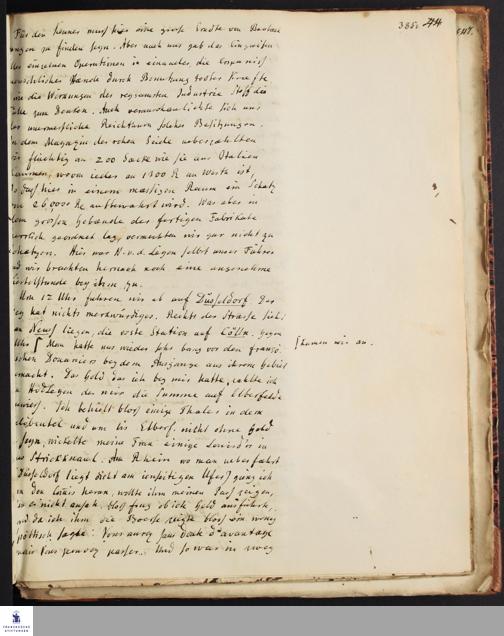 385. 44
Für den Kenner muss hier eine grosse Erndte von Beobach
ungen zu finden seyn. Aber auch uns gab das Eingreifen
der einzelnen Operationen in einander, die Ersparniss
menschlicher Hände durch Benutzung todter Kraefte
die Wirkungen der regsamsten Industrie Stoff die
zum Denken. Auch veranschaulichte sich uns
der unermessliche Reichthum solcher Besitzungen.
In dem Magazin der rohen Seide ueberzaehlten
wir flüchtig an 200 Säcke wie sie aus Italien
kommen, wovon jeder an 1300 R. an Werth ist,
so dass hier in einem maessigen Raum ein Schatz
von 260,000 R. aufbewahrt wird. Was aber in
dem grossen Gebaude der fertigen Fabrikate
herrlich geordnet lag, vermochten wir gar nicht zu
schatzen. Hier war H. v. d. Leyen selbst unser Führer
und wir brachten hernach noch eine angenehme
Viertelstunde bey ihm zu.
Um 12 Uhr fuhren wir ab auf Düsseldorf. Der
Weg hat nichts merkwürdiges. Rechts der Strasse sieht
man Neuss liegen, die erste Station auf Cölln. Gegen
Uhr ſ Man hatte uns wieder sehr bang vor den französ
ſ kamen wir an.
schen Douaniers bey dem Ausgange aus ihrem Gebiet
gemacht. Das Geld das ich bey mir hatte, zahlte ich
der mir die Summe auf Elberfeld
anwiess. Ich behielt bloss einige Thaler in dem
Geldbeutel und um bis Elberf. nicht ohne Geld
zu seyn, wickelte meine Frau einige Louisd'or in
Strickknaul. Am Rhein wo man ueberfaehrt
Düsseldorf liegt dicht am jenseitigen Ufer ſ ging ich
zu den Comis heran, wollte ihm meinen Pass zeigen,
er nicht ansah, bloss frug ob ich Geld ausführte,
und da ich ihm die Boerse zeigte bloss ein wenig
spöttisch sagte: Vous aurez sans doute d'avantage
mais vous pouvez passer. Und so war in